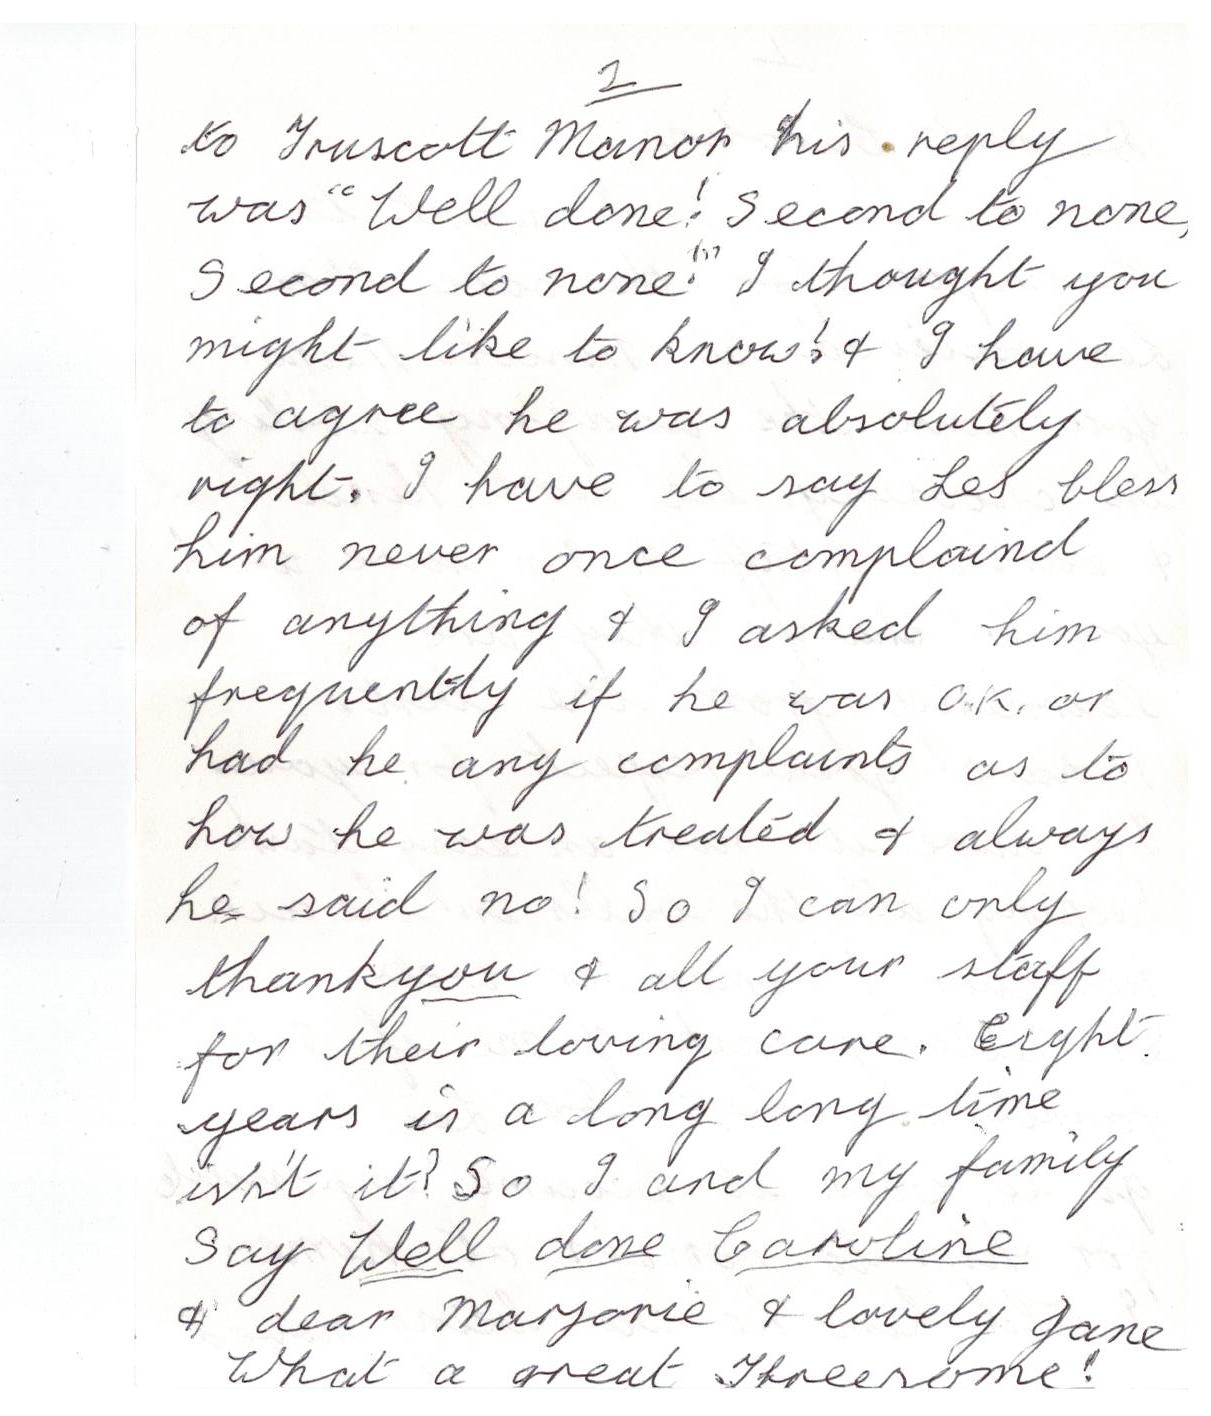 2
to Truscott Manor his reply
was "Well done! Second to none,
Second to none!" I thought you
might like to know! & I have
to agree he was absolutely
right. I have to say Les bless
him never once complaind
of anything & I asked him
frequently if he was O.K. or
had he any complaints as to
how he was treated & always
he said no! So I can only
thankyou & all your staff
for their loving care. Eight
years is a long long time
isn't it? So I and my family
Say Well done Caroline
& dear Marjorie & lovely Jane
What a great Threesome!